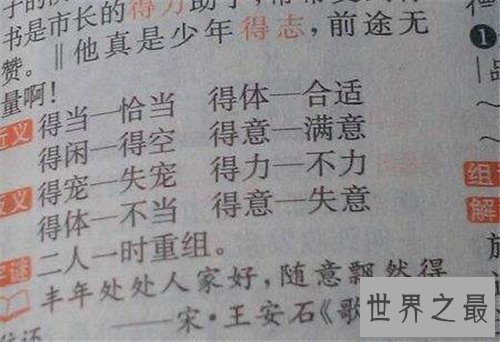 子的
书是市长的得力助手,常常
赞。‖他真是少年得志,前途无
量啊!
近义 得当—恰当 得体—合适
得闲—得空 得意—满意
反义 得宠—失宠 得力—不力
得体—不当 得意—失意
字谜 二人一时重组。
丰年处处人家好,随意飘然得
——宋·王安石《歌
❶
组
解
世界之最